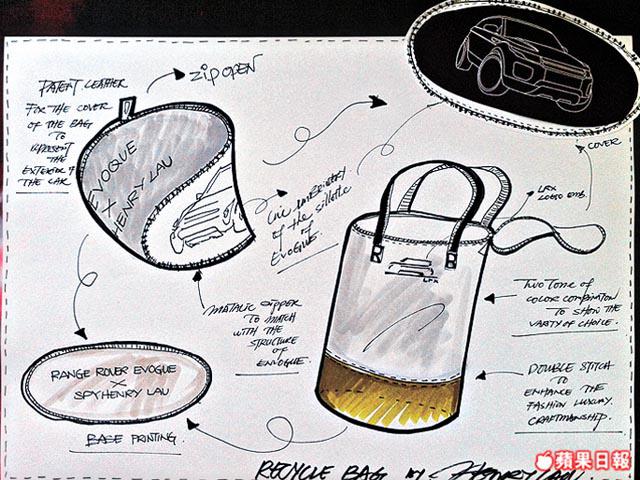 PATENT LEATHER
FOR THE COVER
OF THE BAG
TO
REPRESENT
THE
EXTERIOR OF
THE CAR
ZIP OPEN
EVOQUE
X
HENRY LAU
LINE
of the
of
EVOGUE.
COVER
LRX
LOGO EMB.
LRX
MATALIC ZIPPER
TO MATCH
WITH THE
STRUCTURE
OF
TWO TONE OF
COLOR
TO SHOW THE
OF CHOICE.
DOUBLE STITCH
TO
ENHANCE THE
FASHION LUXURY.
CRAFTMANSHIP.
RANGE ROVER EVOGUE
X
SPYHENRY LAU
BASE PRINTING.
RECYCLE BAG BY HENRY LAU
蘋果日報